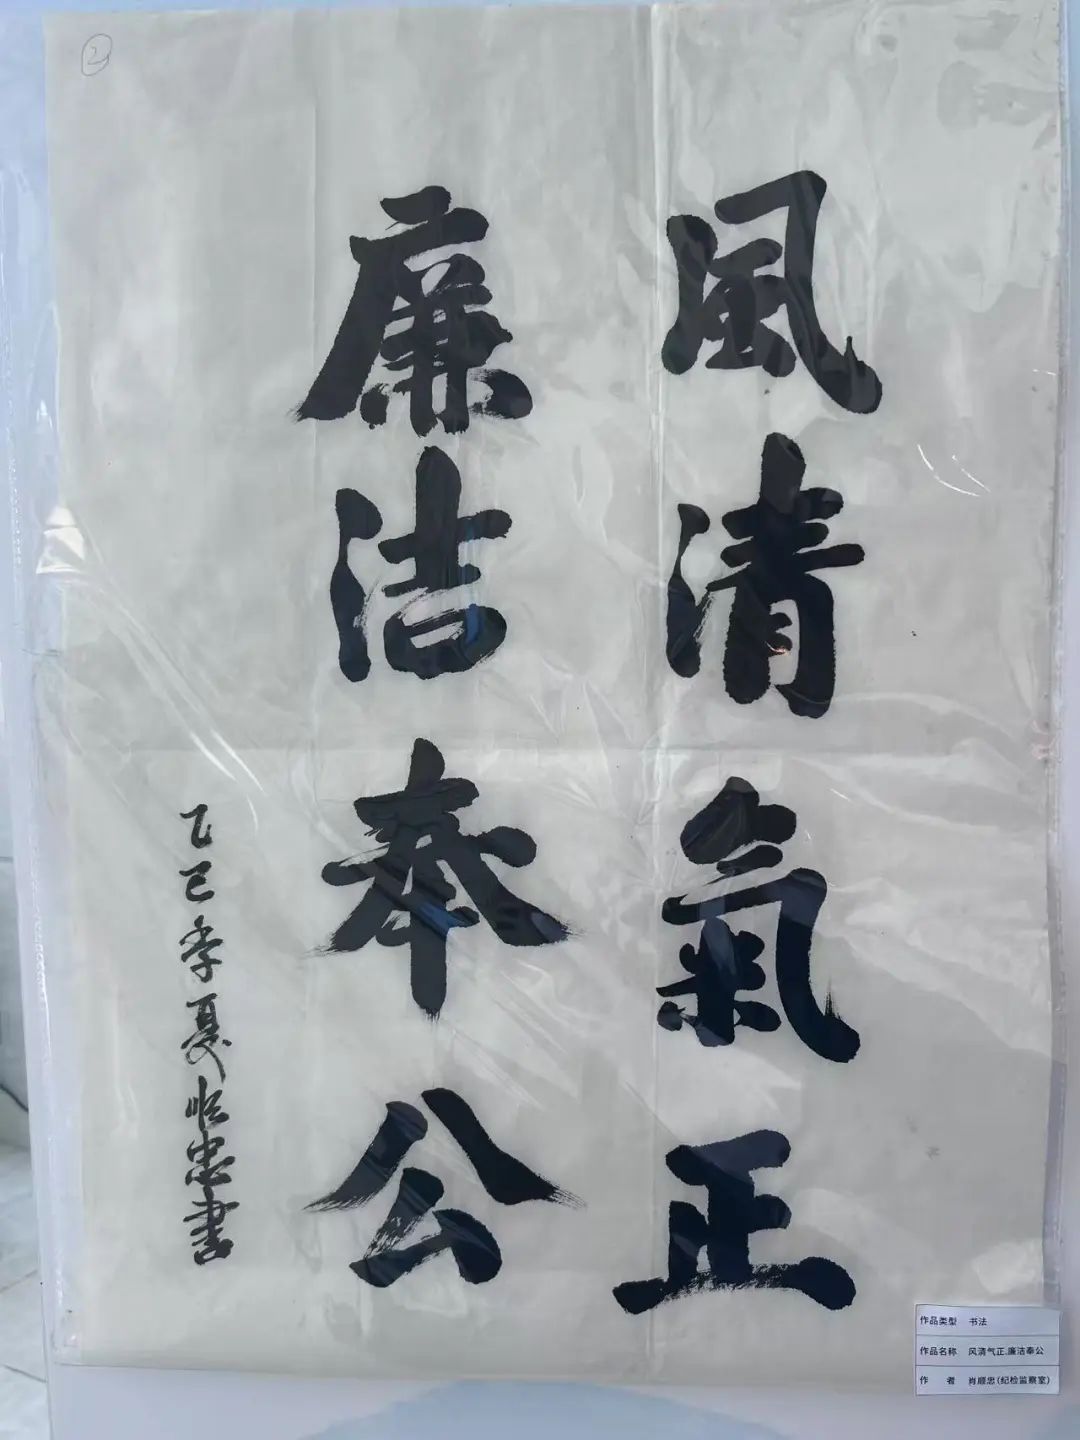 風清氣正
廉洁奉公
乙巳季夏順忠書
2
作品类型 书法
作品名称 风清气正.廉洁奉公
作 者 肖顺忠(纪检监察室)